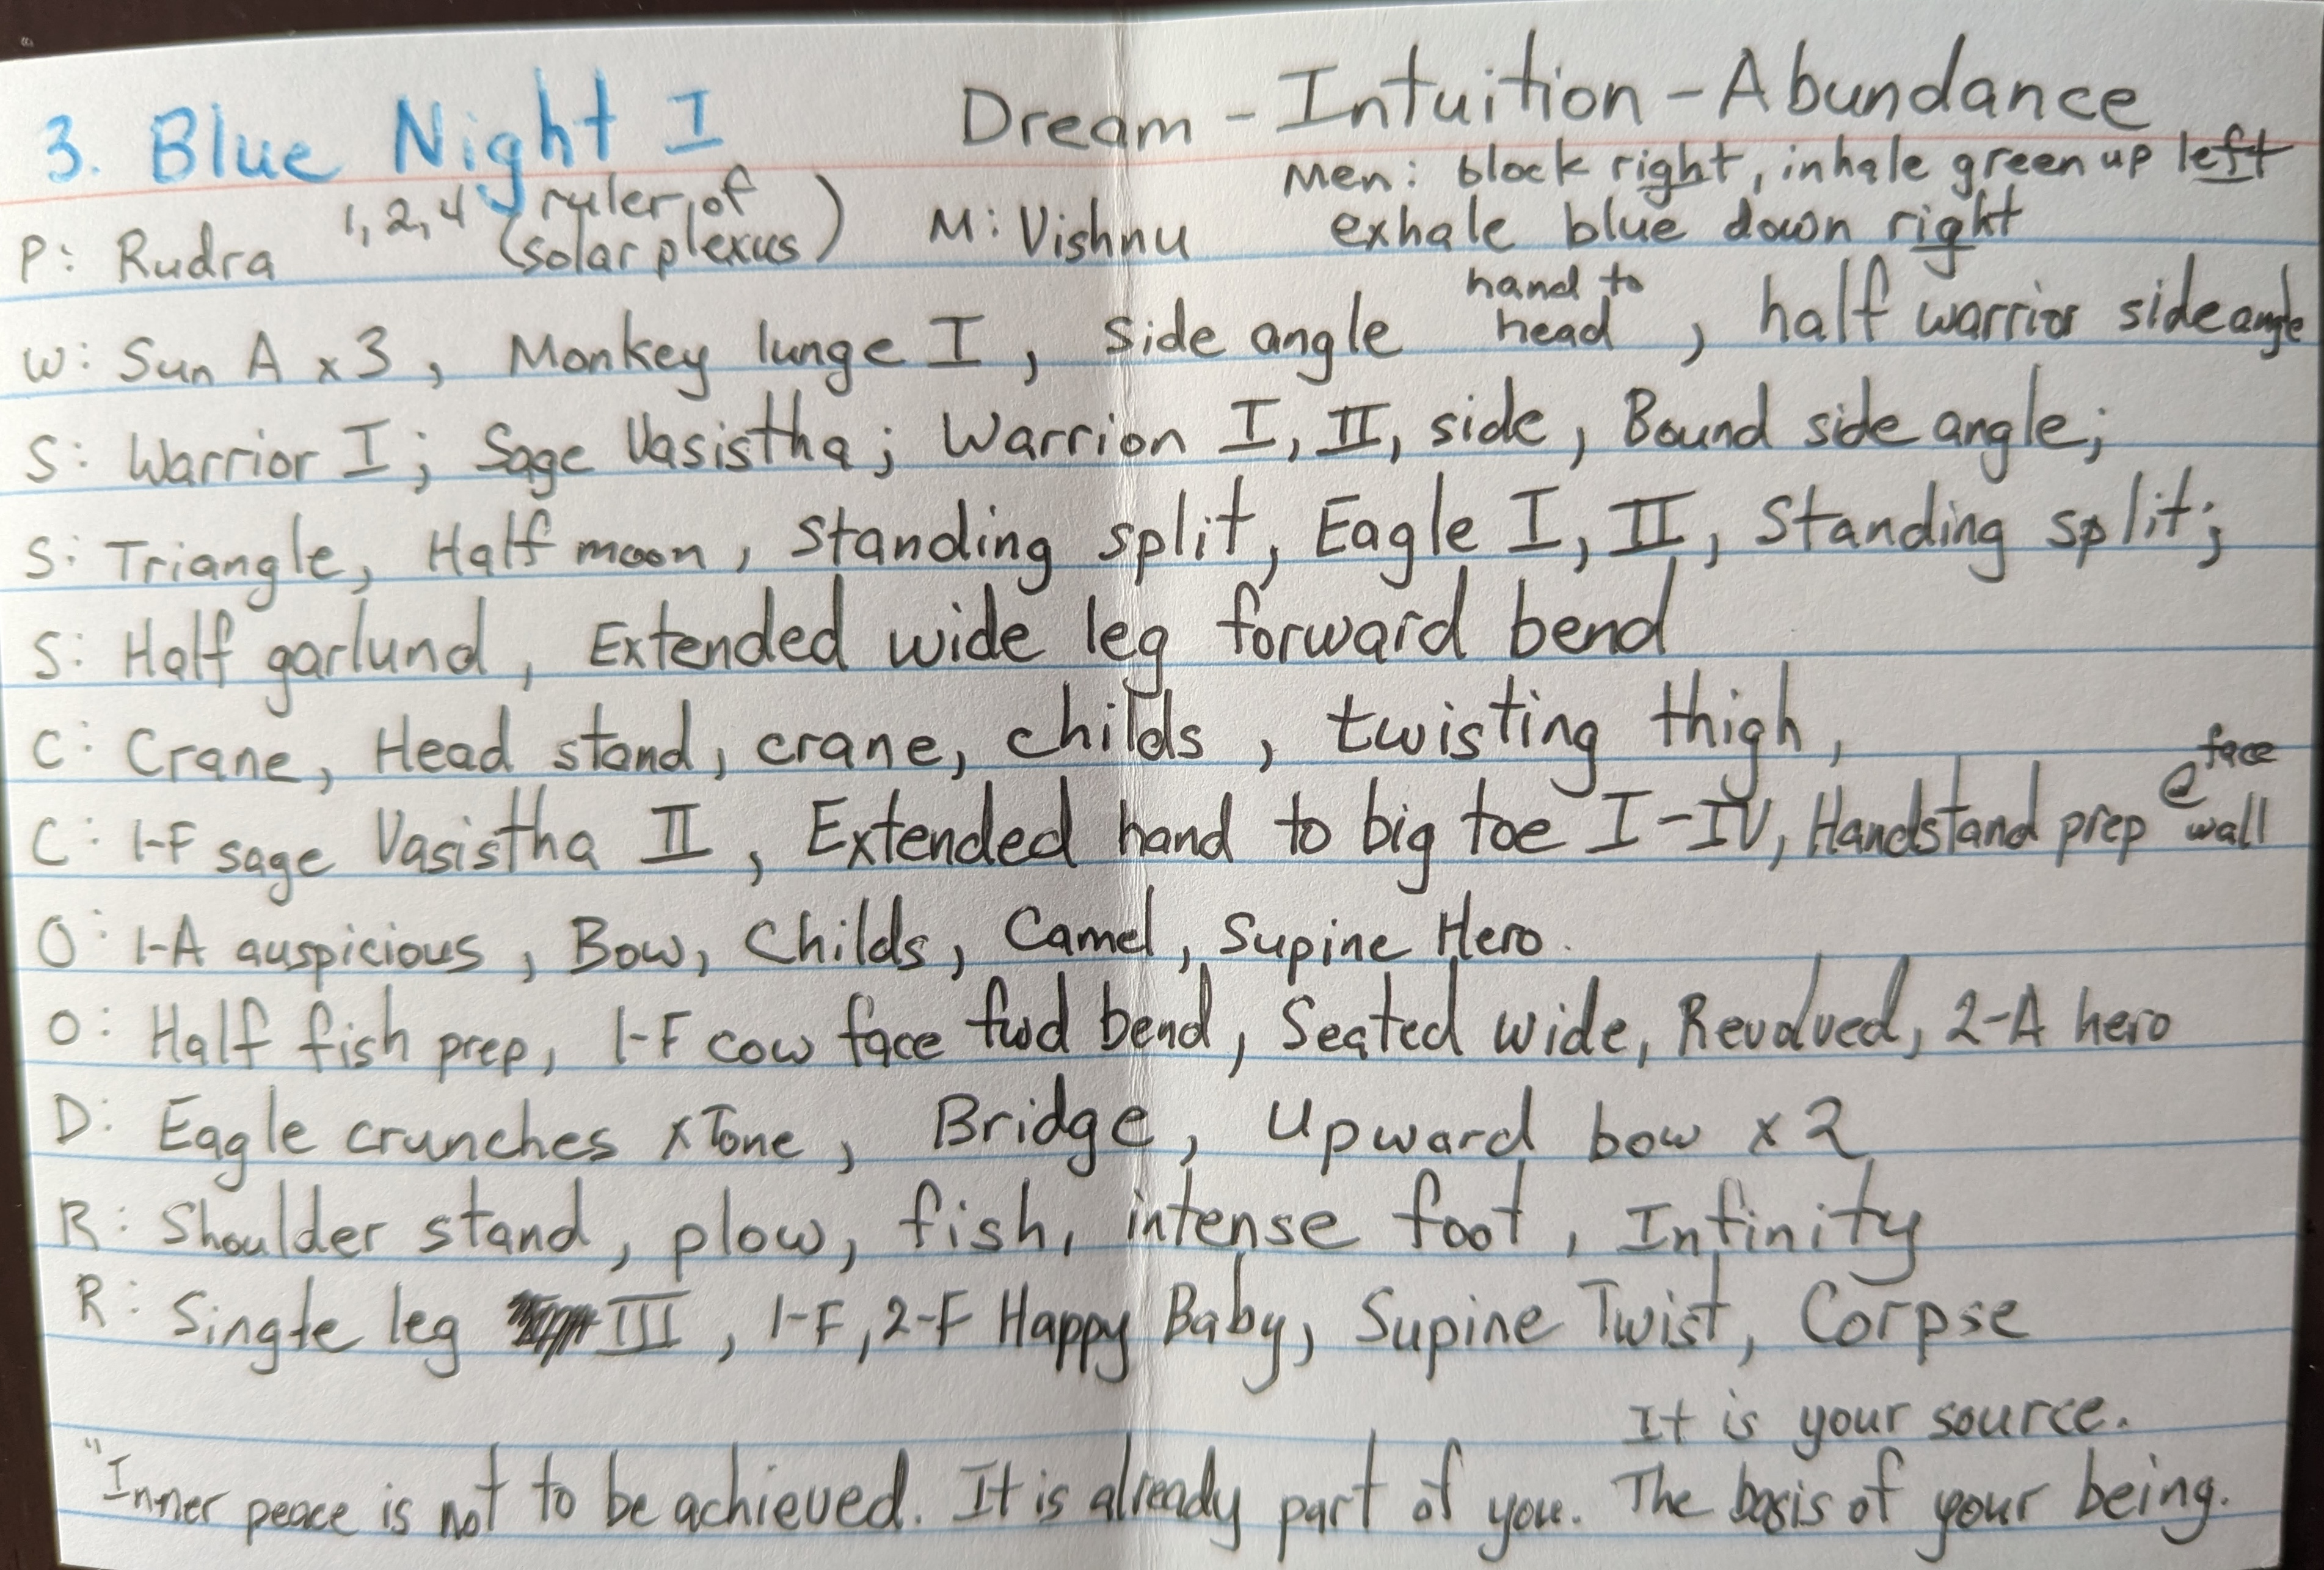 3. Blue Night I   Dream - Intuition - Abundance
Men: block right, inhale green up left
P: Rudra 1, 2, 4 (ruler of solar plexus)   M: Vishnu   exhale blue down right
W: Sun A x 3, Monkey lunge I, side angle hand to head, half warrior side angle
S: Warrior I; Sage Vasistha; Warrion I, II, side, Bound side angle;
S: Triangle, Half moon, Standing split, Eagle I, II, Standing split;
S: Half garlund, Extended wide leg forward bend
C: Crane, Head stand, crane, childs, twisting thigh,
C: 1-F sage Vasistha II, Extended hand to big toe I-IV, Handstand prep @ face wall
O: 1-A auspicious, Bow, Childs, Camel, Supine Hero.
O: Half fish prep, 1-F cow face fwd bend, Seated wide, Revolved, 2-A hero
D: Eagle crunches x Tone, Bridge, Upward bow x 2
R: Shoulder stand, plow, fish, intense foot, Infinity
R: Single leg III, 1-F, 2-F Happy Baby, Supine Twist, Corpse
It is your source.
"Inner peace is not to be achieved. It is already part of you. The basis of your being.